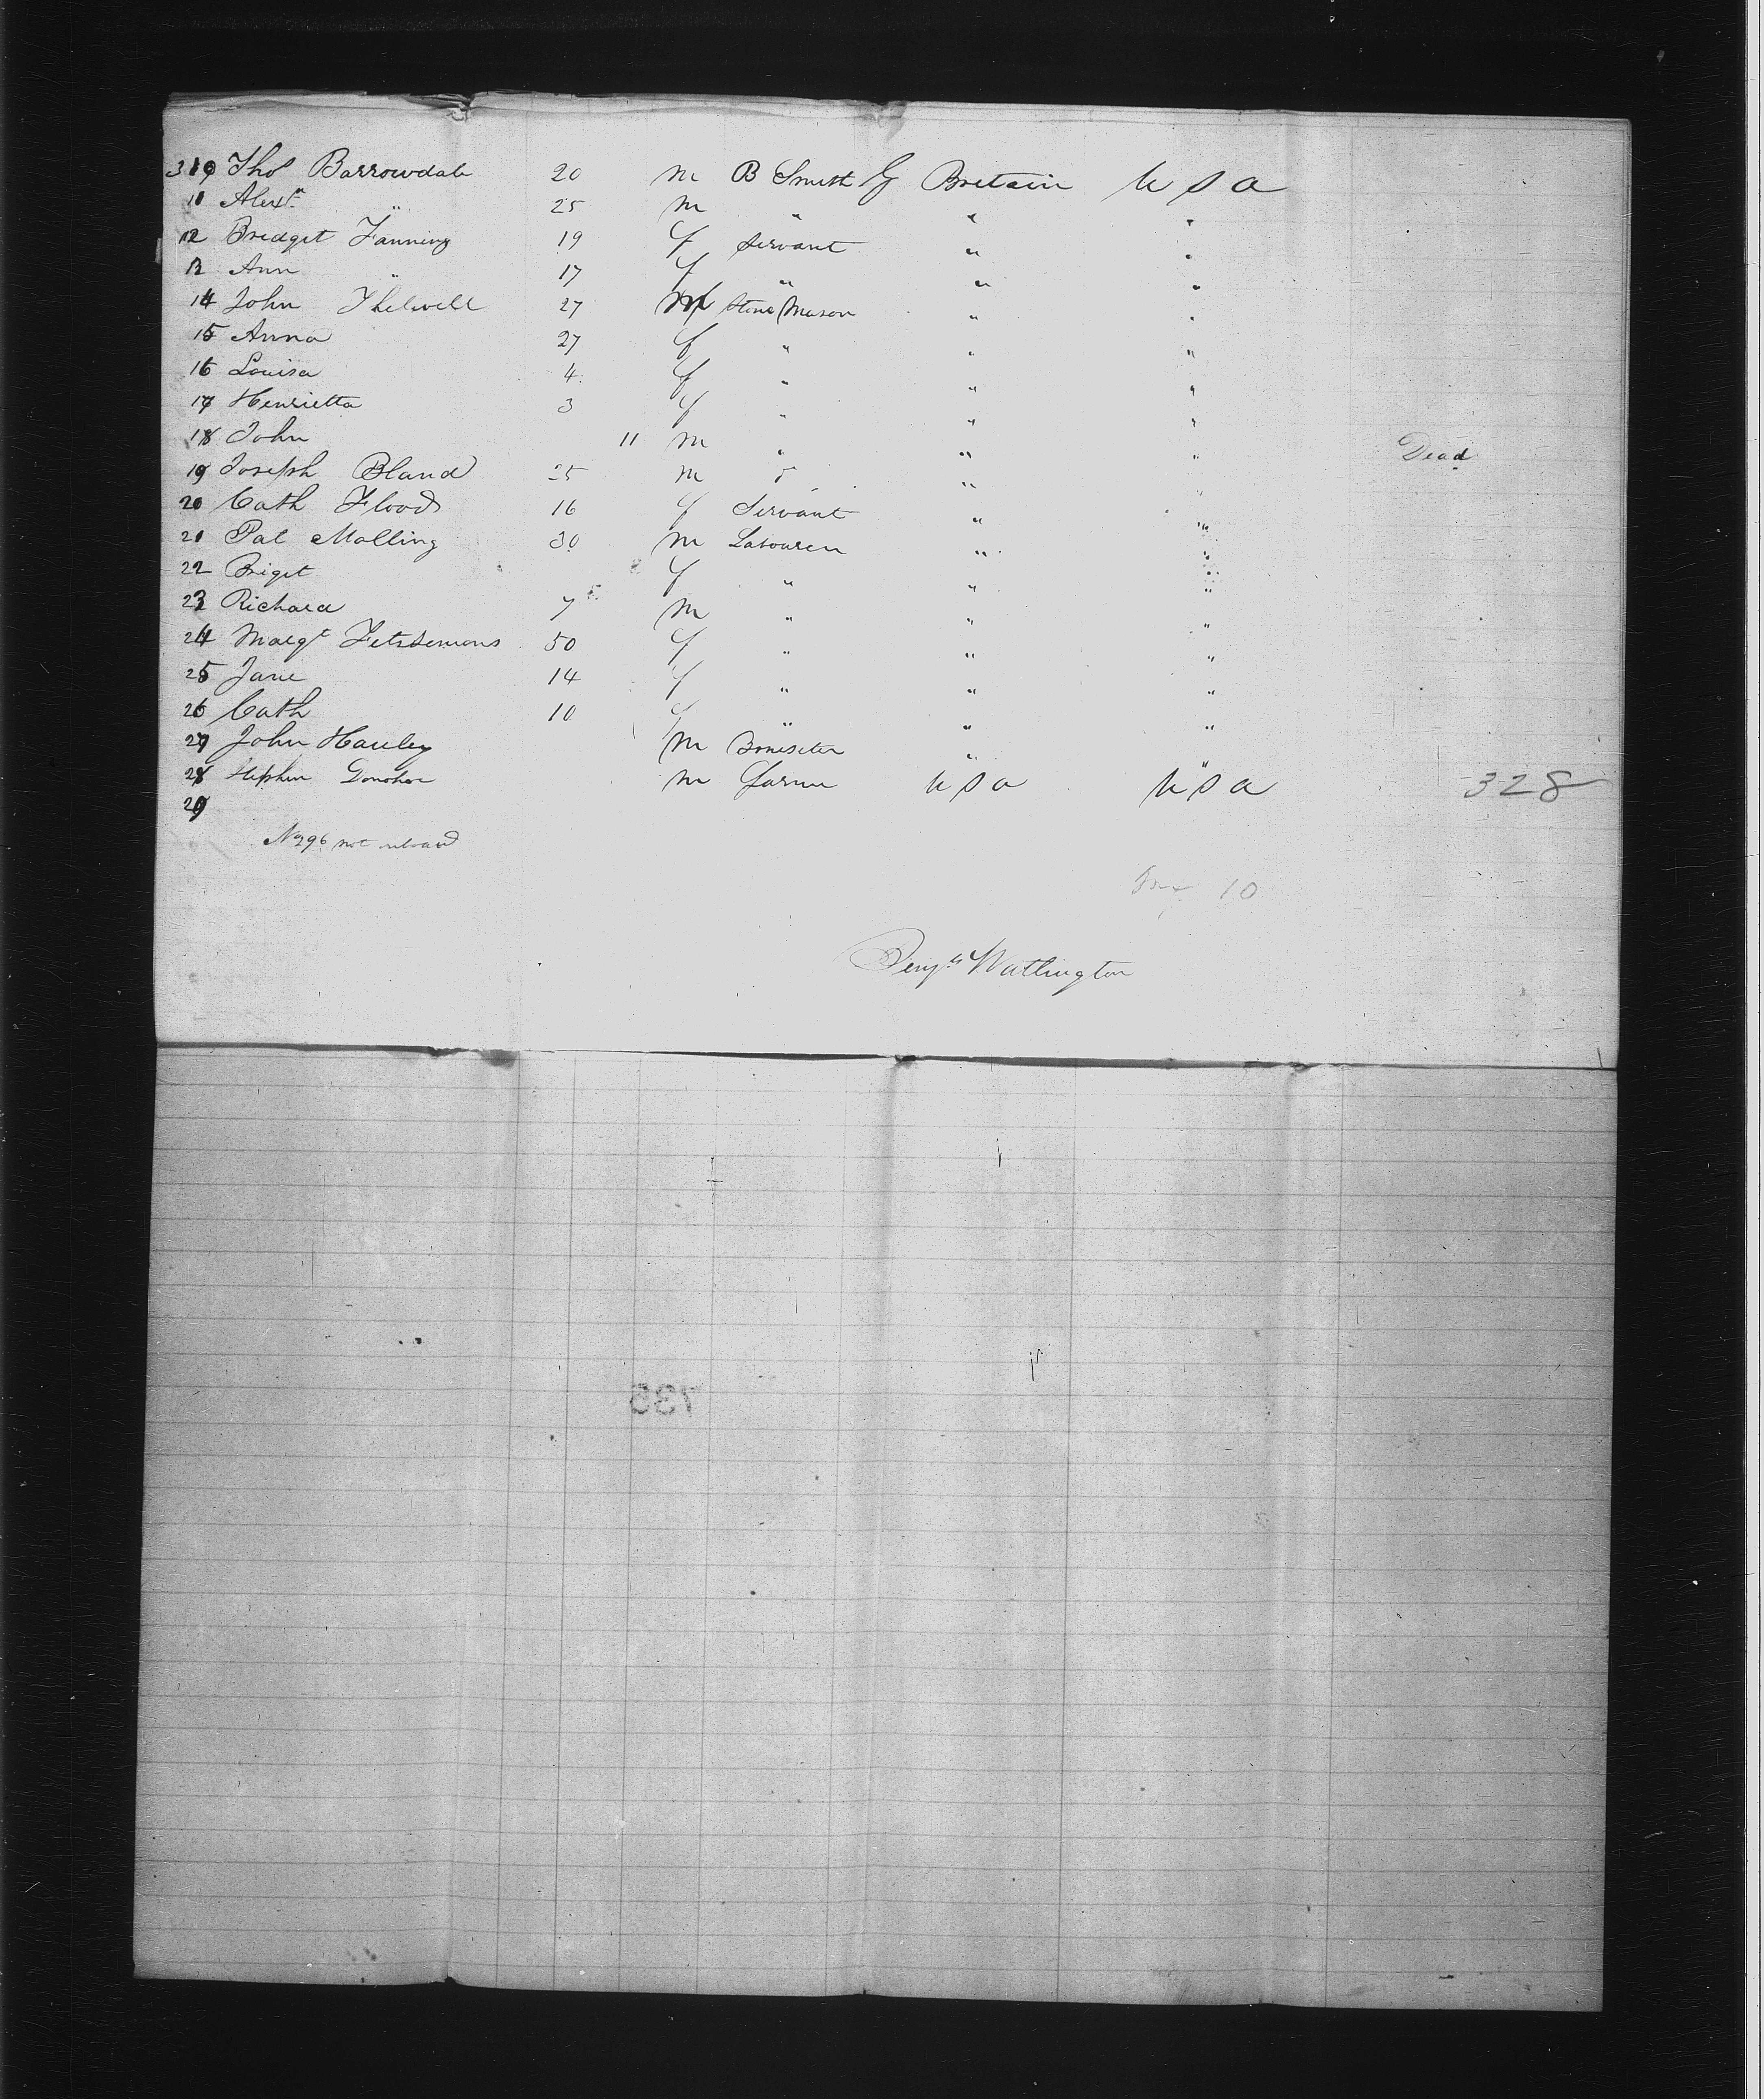 310 Thos Barrowdale 20 m B Smith G Britain U S A
11 Alexr " 25 m " " "
12 Bredget Fanning 19 f Servant " "
13 Ann " 17 f " " "
14 John Thelwell 27 m Stone Mason " "
15 Anna 27 f " " "
16 Louisa 4 f " " "
17 Henrietta 3 f " " "
18 John 11 m " " " Dead
19 Joseph Bland 25 m " "
20 Cath Flood 16 f Servant " "
21 Pat Malling 30 m Labourer " "
22 Briget f " " "
23 Richard 7 m " " "
24 Margt Fetssemons 50 f " " "
25 Jane 14 f " " "
26 Cath 10 f " " "
27 John Hauley m " "
28 Stephen Donohoe m Farmer U S A U S A 328
29
No 296 not onboard
10
Benjn Watlington
738